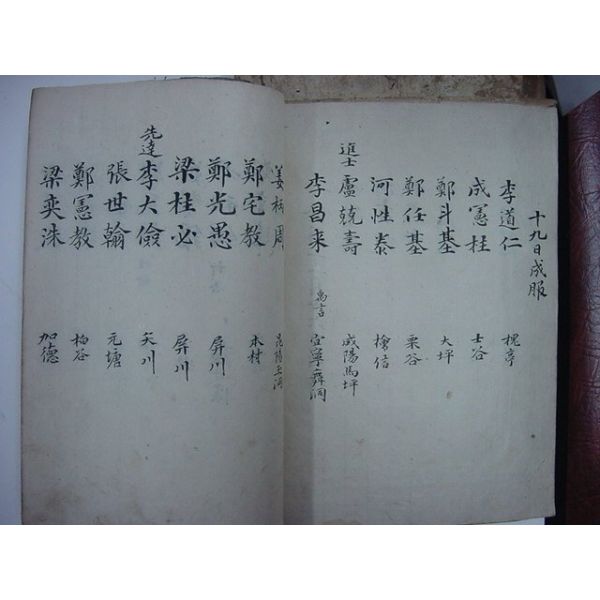 十九日成服
李道仁 槐亭
成憲桂 士谷
鄭斗基 大坪
鄭任基 栗谷
河性泰
進士 盧兢壽 咸陽馬坪
李昌來 宜寧舞洞
姜柄周
鄭宅教 木村
鄭光愚 屏川
梁桂必 屏川
先達 李大儉 矢川
張世翰 元塘
鄭憲教 栢谷
梁奕洙 加德